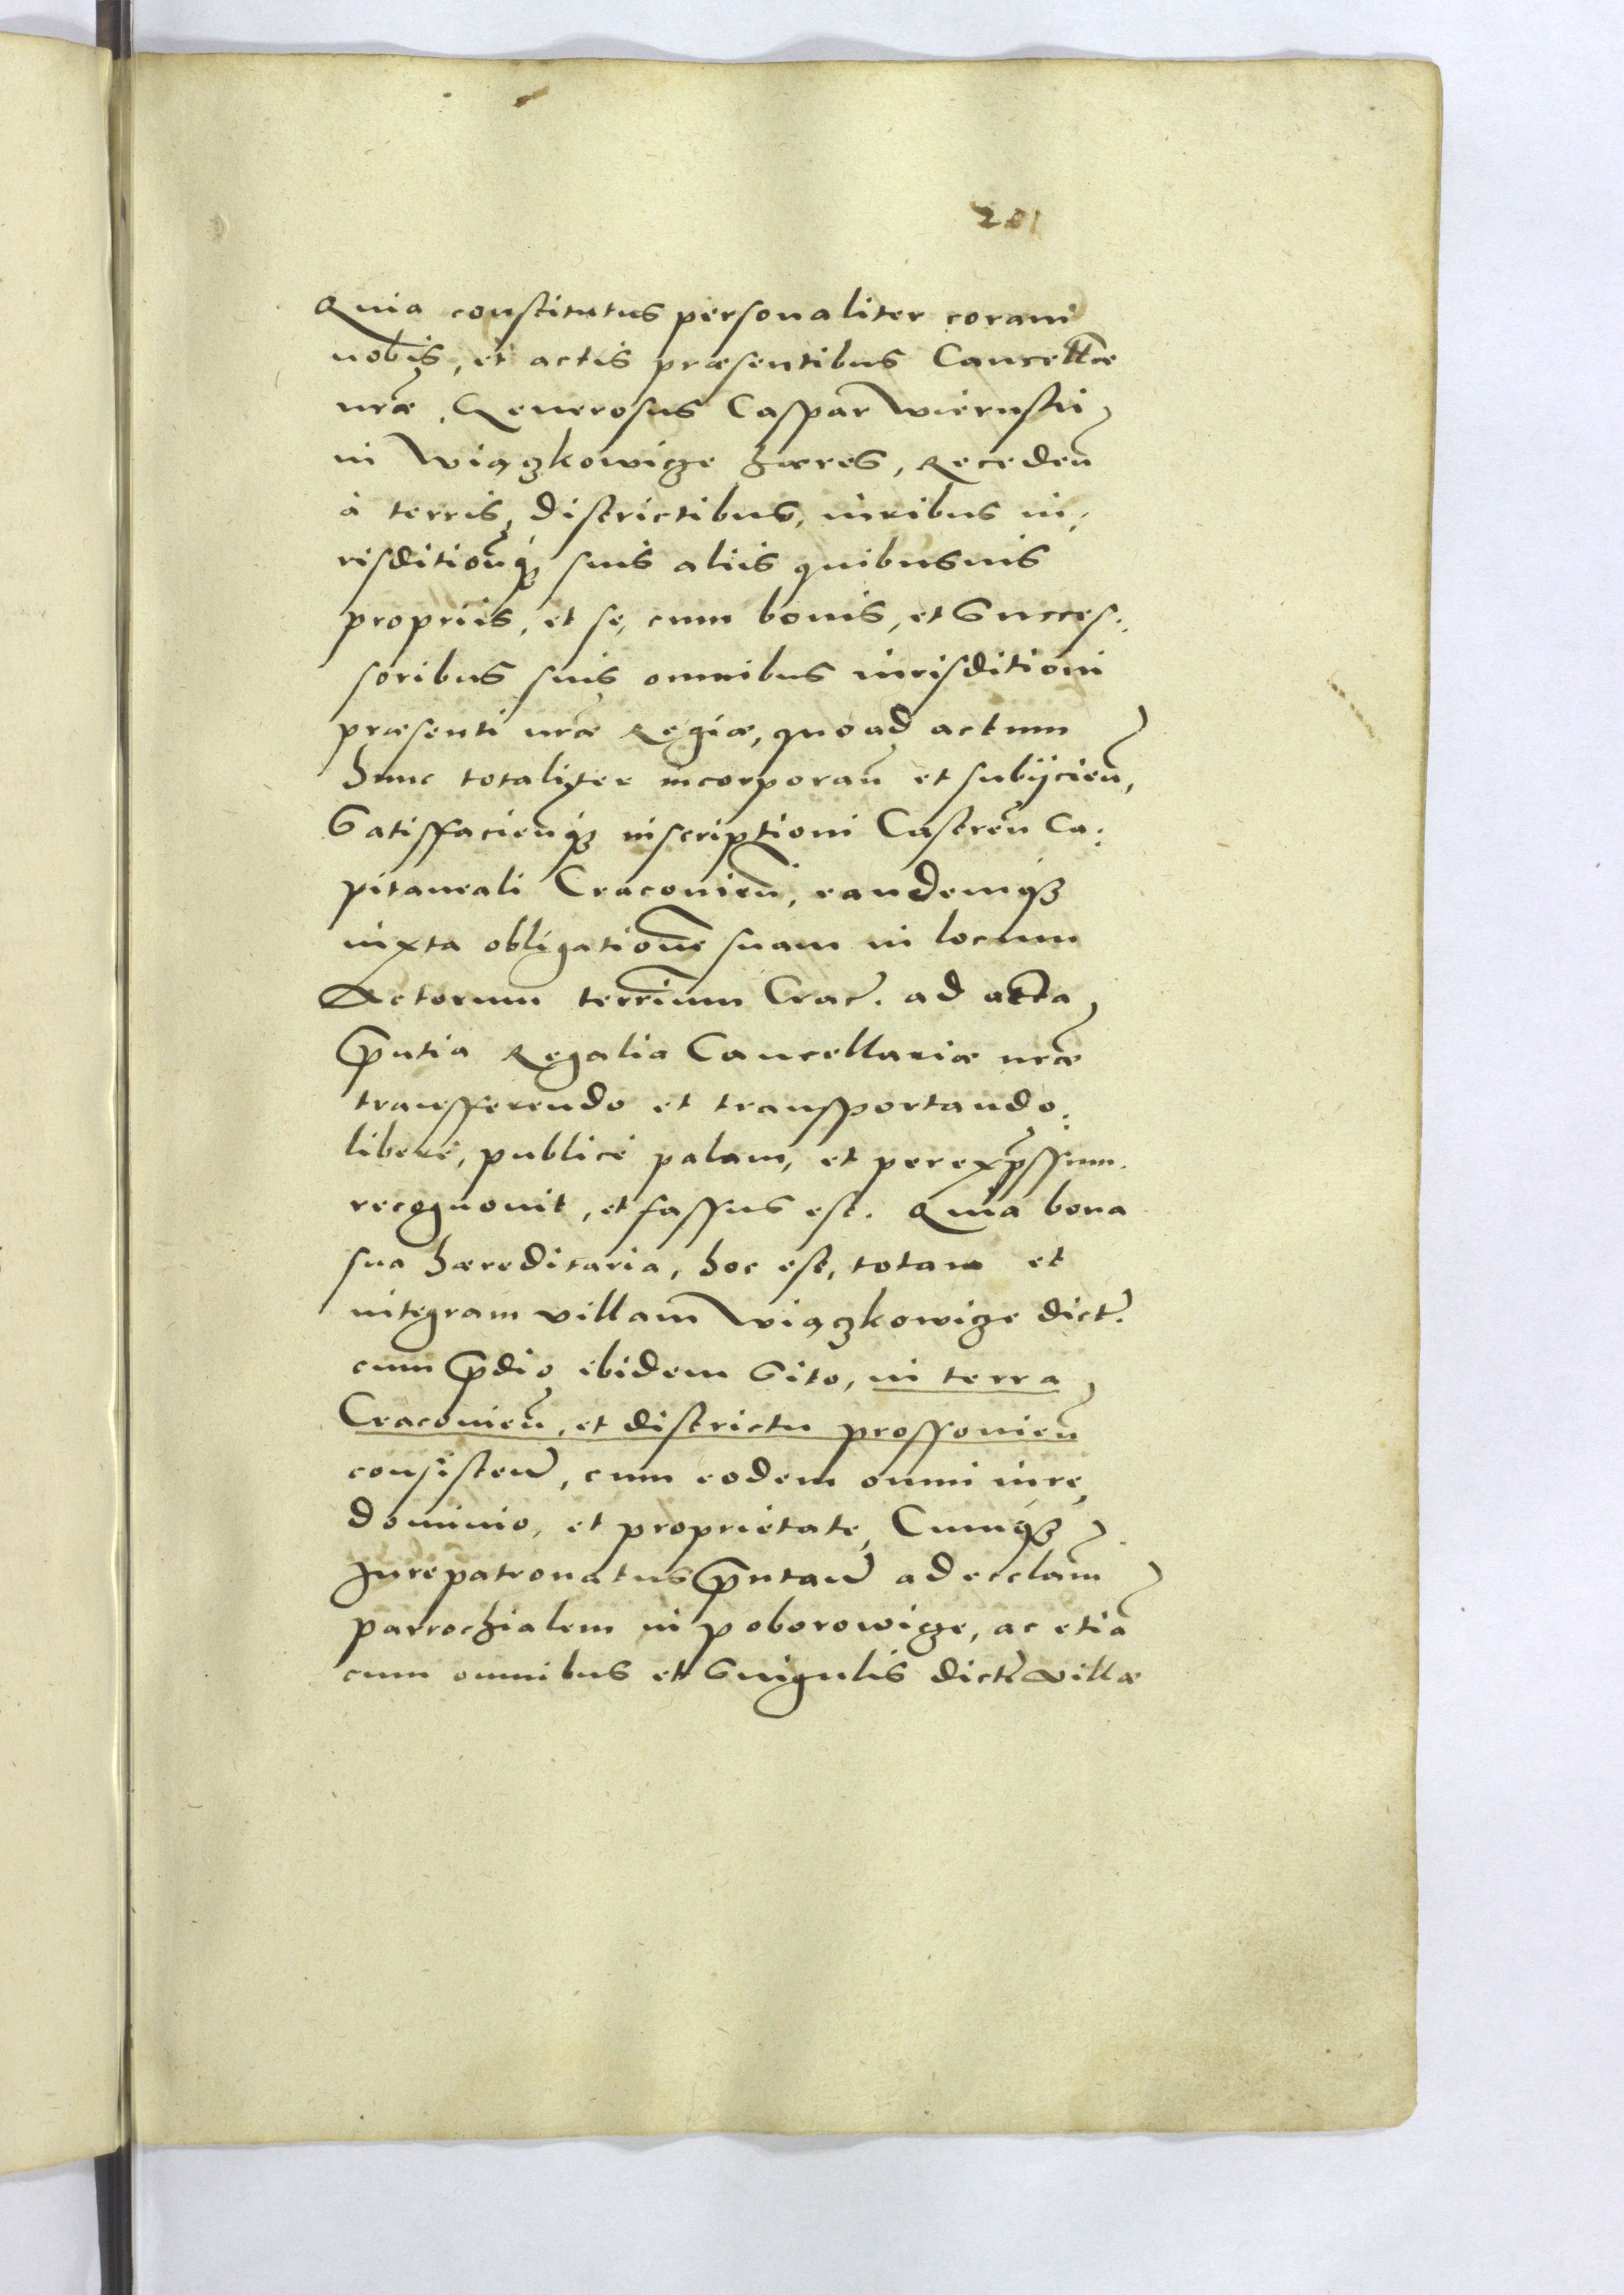 201
Quia constitutus personaliter coram
nobis, et actis præsentibus Cancellæ
nræ, Generosus Caspar Wiernski
in Wiączkowicze hæres, Receden
à terris, districtibus, iuribus iu:
risditionq₃ suis aliis quibusuis
propriis, et se, cum bonis, et Succes:
soribus suis omnibus iurisditioni
præsenti nræ Regiæ, quo ad actum
hunc totaliter incorporan̄ et subÿcien̄,
Satisfacienq₃ inscriptioni Castren̄ Ca:
pitaneali Cracouien̄, eandemq₃
iuxta obligatione suam in locum
Actorum terrium Crac. ad acta
pn̄tia Regalia Cancellariæ nræ
transferendo et transportando:
liberè, publicè palam, et per exp̄ssum.
recognouit, et fassus est. Quia bona
sua hæreditaria, hoc est, totam et
integram villam Wiączkowicze dict.
cum p̄dio ibidem Sito, in terra
Cracouien̄, et districtu prossouien̄
consisten̄, cum eodem omni iure,
dominio, et proprietate, Cumq₃
Jurepatronatus p̄ntan̄ ad ecclam
parrochialem in poborowicze, ac etiā
cum omnibus et Singulis dictæ villæ